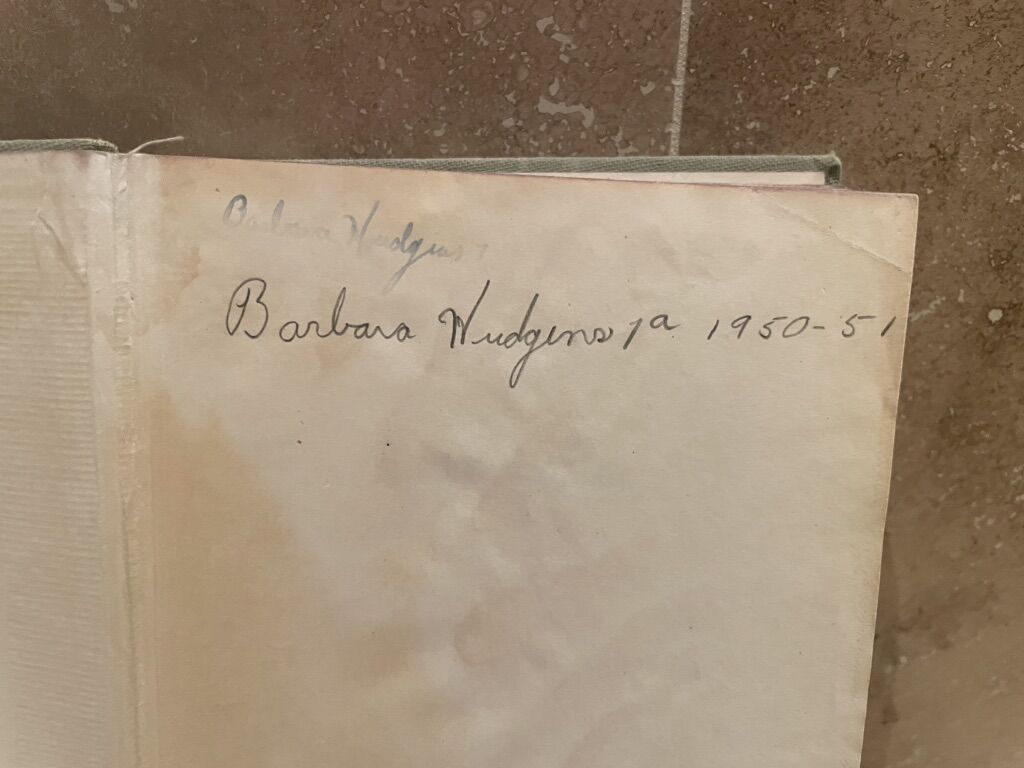 Barbara Hudgins 7
Barbara Hudgins 7a 1950-51